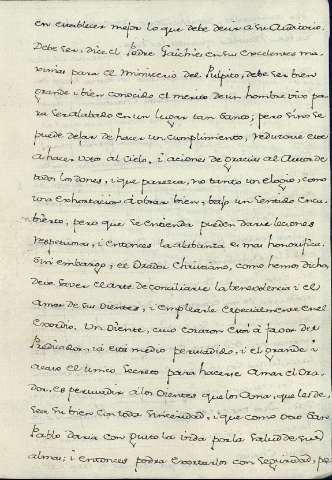 en establecer mejor lo que debe decir a su Auditorio.
Debe ser, dice el Padre Gaichiès en sus Excelentes ma-
ximas para el Ministerio del Pulpito, debe ser bien
grande i bien conocido el merito de un hombre vivo pa-
ra ser alabado en un lugar tan Santo; pero si no se
puede dejar de hacer un cumplimiento, reduzcase este
a hacer votos al Cielo, i acciones de Gracias al Autor de
todos los dones, i que parezca, no tanto un elogio, como
una exhortacion a obrar bien, bajo un sentido encu-
bierto, pero que se entienda pueden darse lecciones
respetuosas, i entonces la alabanza es mas honorifica.
Sin embargo, el Orador Christiano, como hemos dicho
deve saver el arte de conciliarse la benevolencia i el
Amor de sus Oientes, i emplearle especialmente en el
Exordio. Un Oiente, cuio corazon està à favor del
Predicador, ià està medio persuadido, i el grande i
acaso el unico secreto para hacerse Amar el Ora-
dor, es persuadir a los Oientes que los Ama, que les de-
sea su bien con toda sinceridad, i que como otro San
Pablo daria con gusto la vida por la salud de sus
almas; i entonces podra exortarlos con seguridad, pe